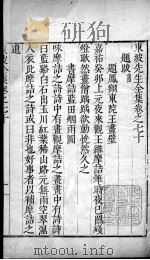 東坡先生全集卷之七十
題跋
題鳳翔東院王畫壁
嘉祐癸卯上元夜來觀王維摩詰筆時夜已闌殘
燈耿然畫僧踽踽欲動恍然久之
書摩詰藍田烟雨圖
味摩詰之詩詩中有畫觀摩詰之畫畫中有詩詩
曰藍谿白石出玉川紅葉稀山路元無雨空翠濕
人衣此摩詰之詩或曰非也好事者以補摩詰之
遺